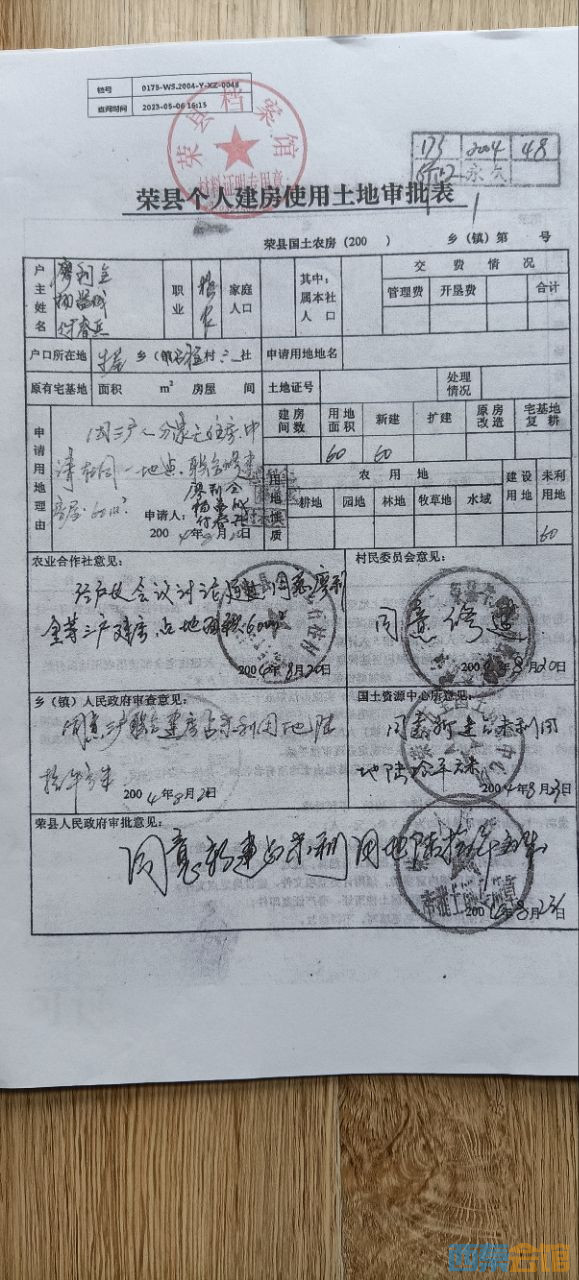 档号 0175-WS.2004-Y-XZ-0048
查阅时间 2023-05-06 16:15
荣县档案馆
材料证明专用章
175 2004 48
永久
荣县个人建房使用土地审批表
荣县国土农房(200 )乡(镇)第 号
户主姓名 廖利全
职业 务农
家庭人口
其中:属本社人口
交费情况
管理费 开垦费 合计
户口所在地 乡(镇) 村 社 申请用地地名
原有宅基地 面积 m² 房屋 间 土地证号 处理情况
申请用地理由
因三户人分家无住房,申
请在同一地点,联合修建
房屋.60m².
申请人: 廖利全
2004年8月20日
建房间数 用地面积 新建 扩建 原房改造 宅基地复耕
60 60
用地性质 农用地 建设用地 未利用地
耕地 园地 林地 牧草地 水域
60
农业合作社意见:
经户长会议讨论通过同意廖利
全等三户建房占地面积60m²
2004年8月20日
村民委员会意见:
同意修建
2004年8月20日
乡(镇)人民政府审查意见:
同意三户联合建房占未利用地陆
拾平方米
2004年8月2日
国土资源中心房意见:
同意新建占未利用
地陆拾平方米
2004年8月23日
荣县人民政府审批意见:
同意新建占未利用地陆拾平方米
审批工作专用章
2004年8月23日